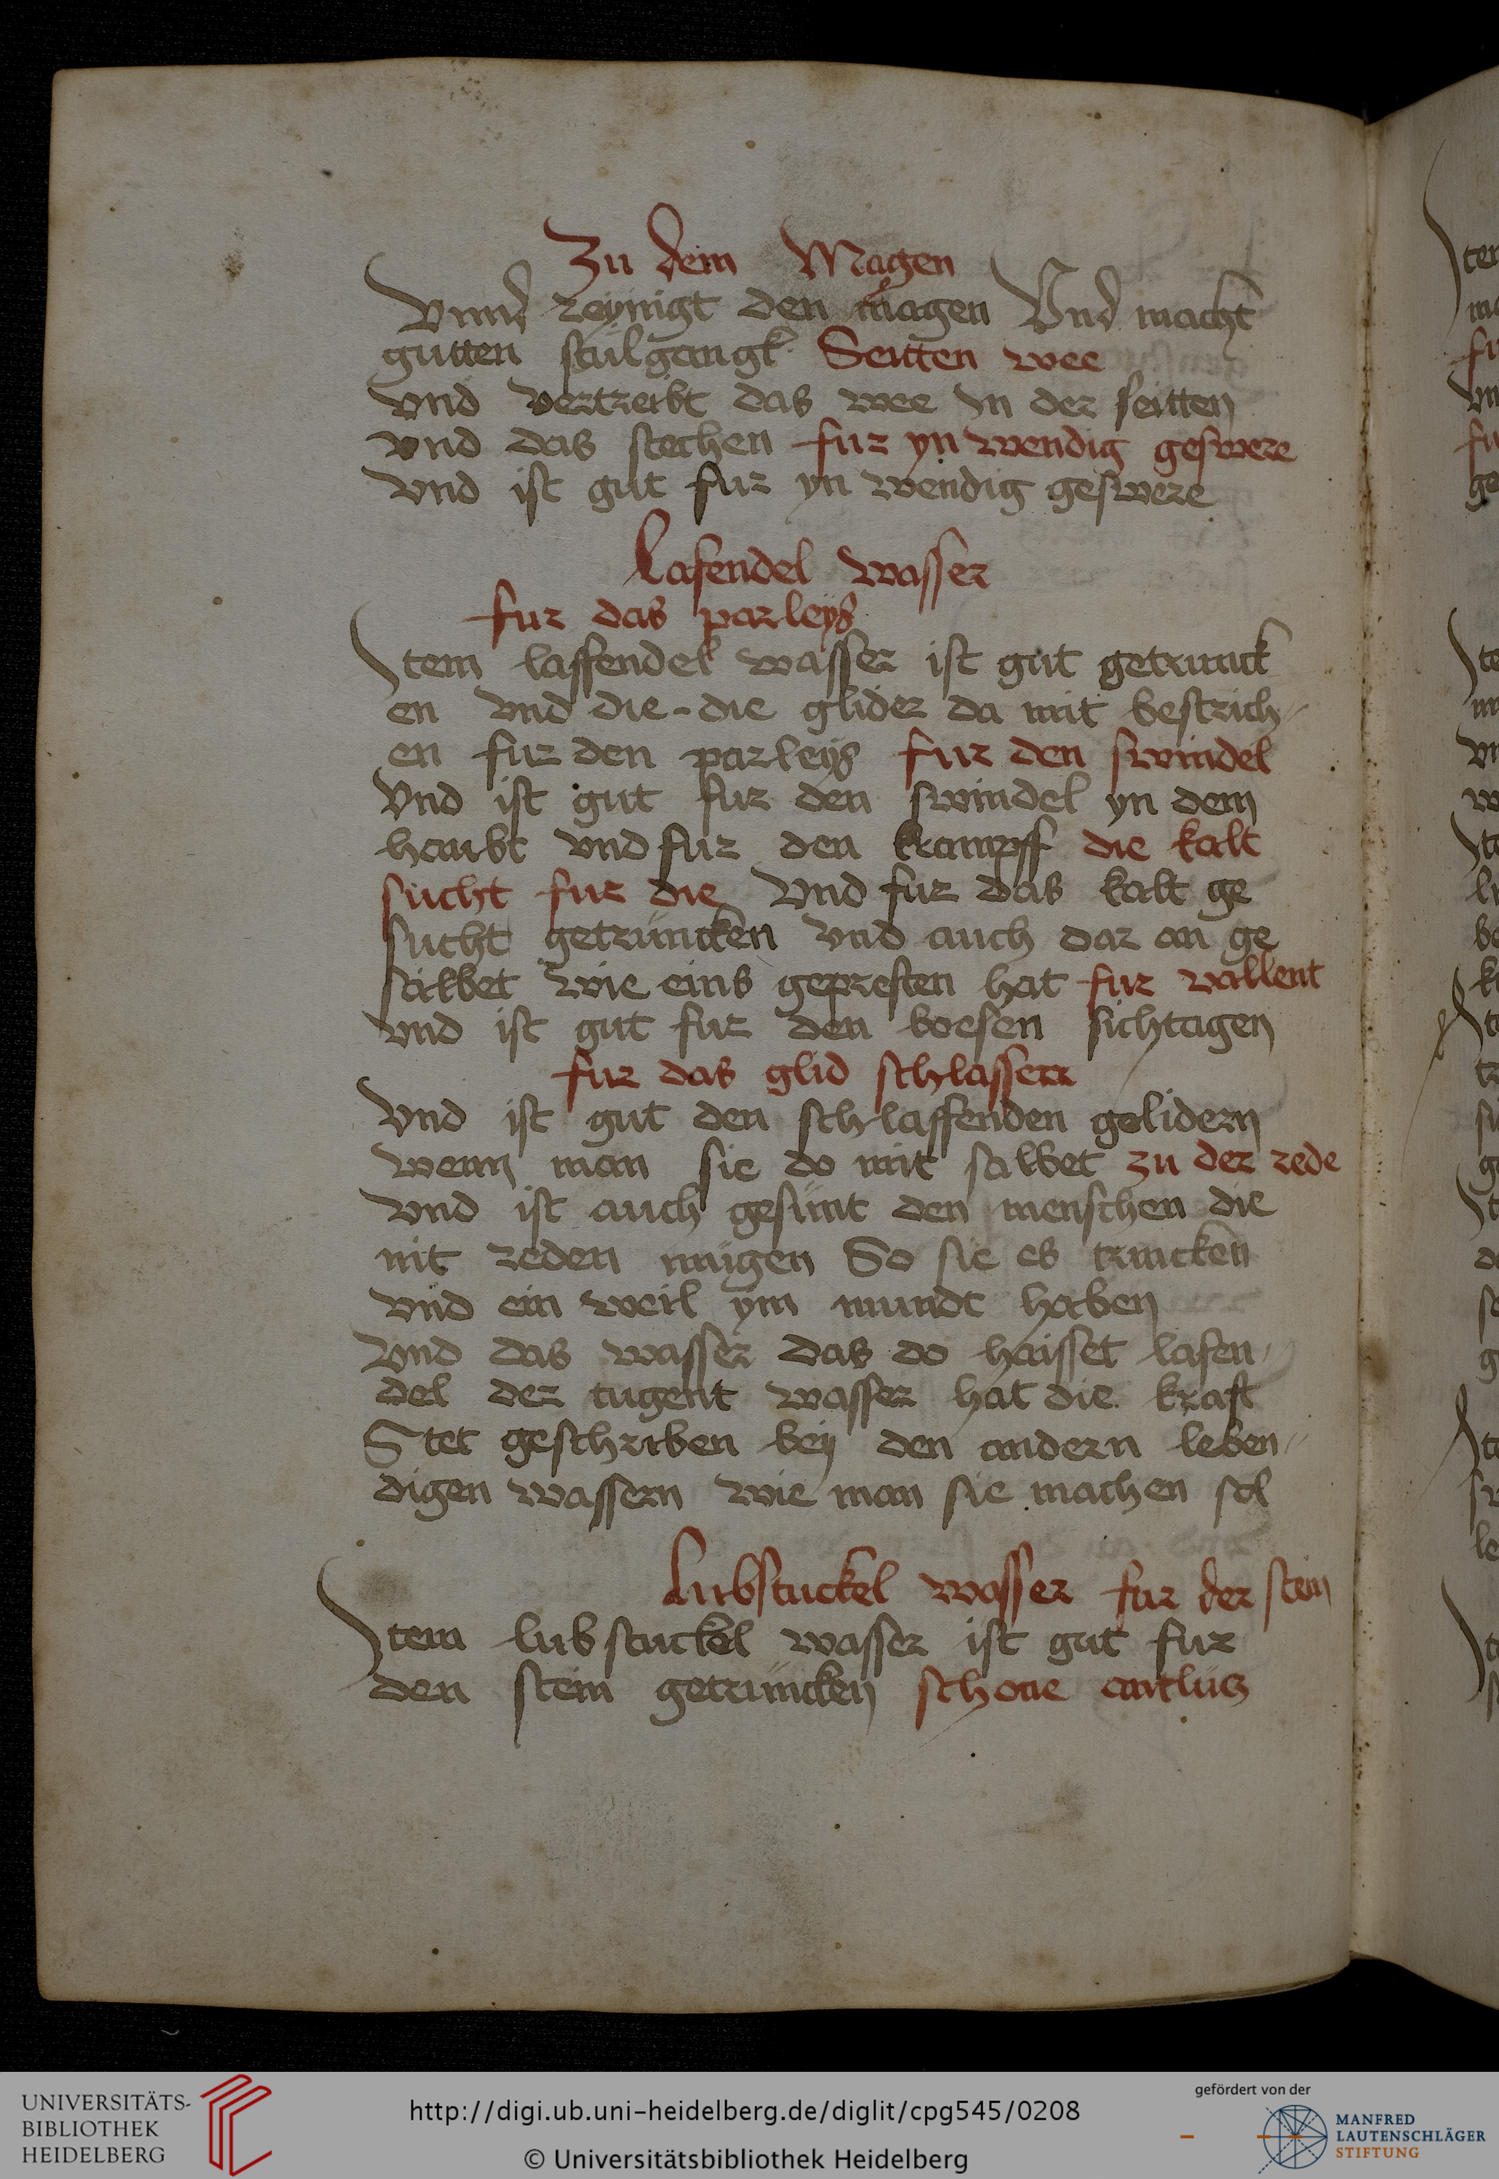 Zu dem Magen
Vnnd reynigt den magen Vnd macht
gutten stulgangk Seitten wee
vnd vertreibt das wee In der seitten
vnd das stechen fur yn wendig geswere
vnd ist gut fur yn wendig geswere
Lafendel wasser
fur das parleys
Item laffendel wasser ist gut getrunck
en vnd die - die glider da mit bestrich
en fur den parleys fur den swindel
Vnd ist gut fur den swindel yn dem
haubt vnd fur den krampff die kalt
sucht fur die Vnd fur das kalt ge
sucht getruncken vnd auch dar an ge
salbet wie eins gepresten hat fur vallent
vnd ist gut fur den boesen sichtagen
fur das glid schlassen
Vnd ist gut den schlaffenden gelidern
wenn man sie do mit salbet zu der rede
vnd ist auch gesunt den menschen die
nit reden mugen So sie es trincken
vnd ein weil ym mundt haben
Vnd das wasser das do haisset lafen
del der tugent wasser hat die kraft
Stet geschriben bey den andern leben
digen wassern wie man sie machen sol
Lubstuckel wasser fur der stein
Item lubstuckel wasser ist gut fur
den stein getruncken schone antlutz
UNIVERSITÄTS-
BIBLIOTHEK
HEIDELBERG
http://digi.ub.uni-heidelberg.de/diglit/cpg545/0208
© Universitätsbibliothek Heidelberg
gefördert von der
MANFRED
LAUTENSCHLÄGER
STIFTUNG